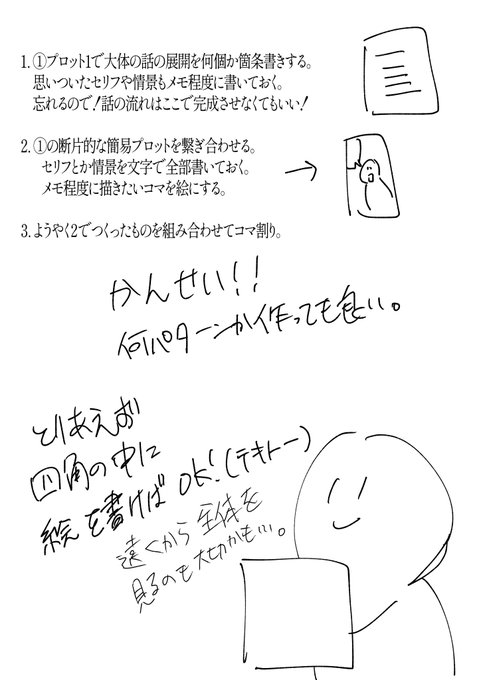 1. ①プロット1で大体の話の展開を何個か箇条書きする。
思いついたセリフや情景もメモ程度に書いておく。
忘れるので!話の流れはここで完成させなくてもいい!
2. ①の断片的な簡易プロットを繋ぎ合わせる。
セリフとか情景を文字で全部書いておく。
メモ程度に描きたいコマを絵にする。
3. ようやく2でつくったものを組み合わせてコマ割り。
かんせい!!
何パターンか作っても良い。
とりあえず
四角の中に
絵を書けばOK!(テキトー)
遠くから全体を
見るのも大切かも…。